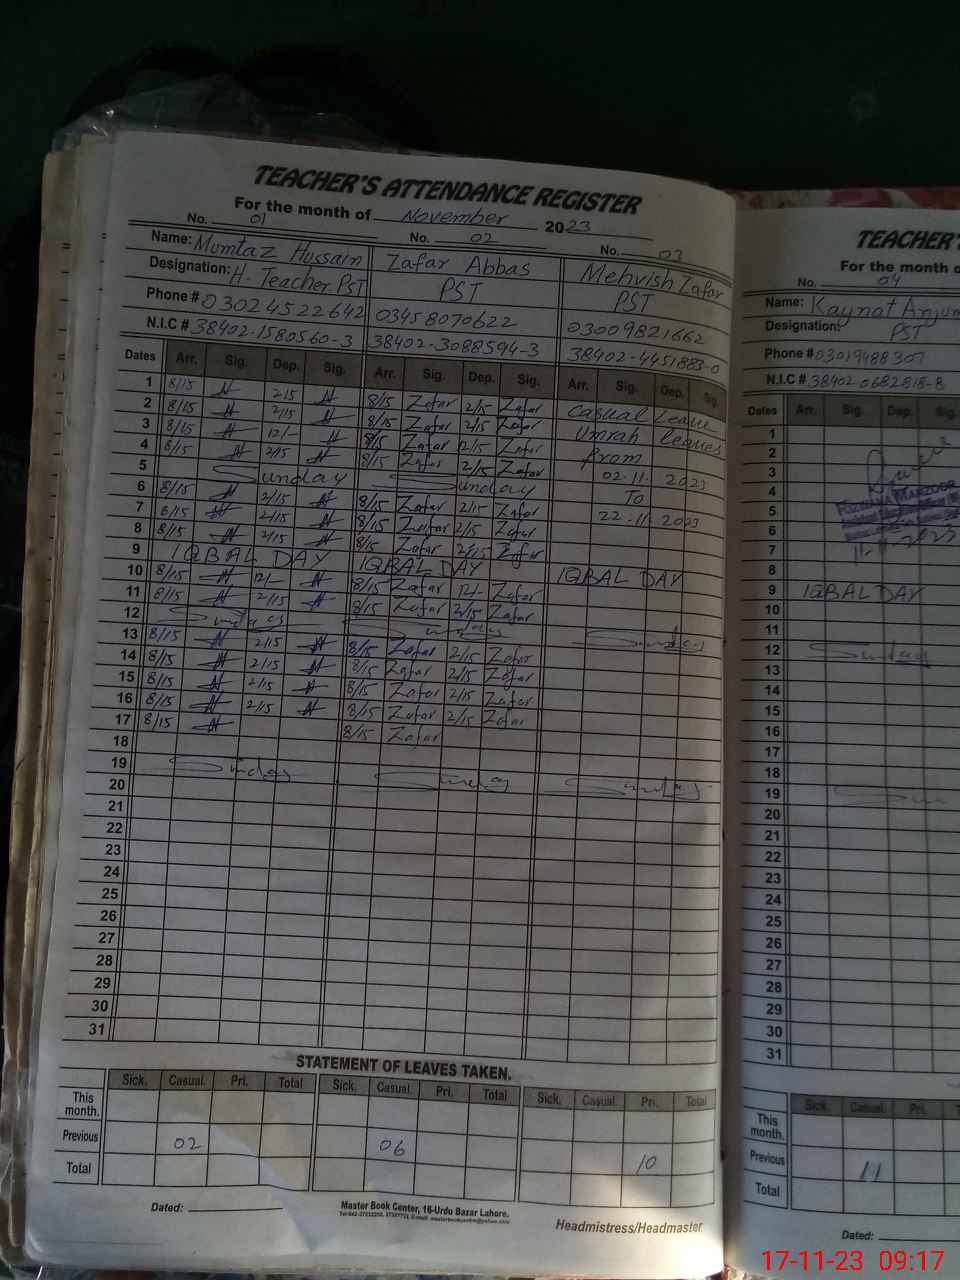 TEACHER'S ATTENDANCE REGISTER
For the month of November 2023
No. 01 No. 02 No. 03
Name: Mumtaz Hussain Zafar Abbas Mehvish Zafar
Designation: H. Teacher PST PST PST
Phone # 03024522642 03458070622 03009821662
N.I.C # 38402-1580560-3 38402-3088594-3 38402-4451883-0
Dates Arr. Sig. Dep. Sig. Arr. Sig. Dep. Sig. Arr. Sig. Dep. Sig.
1 8/15 2/15 8/15 Zafar 2/15 Zafar Casual Leave
2 8/15 2/15 8/15 Zafar 2/15 Zafar Umrah leaves
3 8/15 12/- 8/15 Zafar 12/15 Zafar from
4 8/15 2/15 8/15 Zafar 2/15 Zafar 02-11-2023
5 Sunday Sunday To
6 8/15 2/15 8/15 Zafar 2/15 Zafar 22-11-2023
7 8/15 2/15 8/15 Zafar 2/15 Zafar
8 8/15 2/15 8/15 Zafar 2/15 Zafar
9 IQBAL DAY IQBAL DAY IQBAL DAY
10 8/15 12/- 8/15 Zafar 12/- Zafar
11 8/15 2/15 8/15 Zafar 2/15 Zafar
12 Sunday Sunday Sunday
13 8/15 2/15 8/15 Zafar 2/15 Zafar
14 8/15 2/15 8/15 Zafar 2/15 Zafar
15 8/15 2/15 8/15 Zafar 2/15 Zafar
16 8/15 2/15 8/15 Zafar 2/15 Zafar
17 8/15 8/15 Zafar
18
19 Sunday Sunday Sunday
20
21
22
23
24
25
26
27
28
29
30
31
STATEMENT OF LEAVES TAKEN.
Sick. Casual. Pri. Total Sick. Casual. Pri. Total Sick. Casual. Pri. Total
This month.
Previous 02 06 10
Total
Dated:
Master Book Center, 16-Urdu Bazar Lahore.
Headmistress/Headmaster
TEACHER'
For the month o
No. 04
Name: Kaynat Anjum
Designation: PST
Phone # 03019488307
N.I.C # 38402-0682818-8
Dates Arr. Sig. Dep. Sig.
1
2
3
4
5
6
7
8
9 IQBAL DAY
10
11
12 Sunday
13
14
15
16
17
18
19 Sun
20
21
22
23
24
25
26
27
28
29
30
31
Sick. Casual. Pri.
This month.
Previous 11
Total
Dated:
17-11-23 09:17